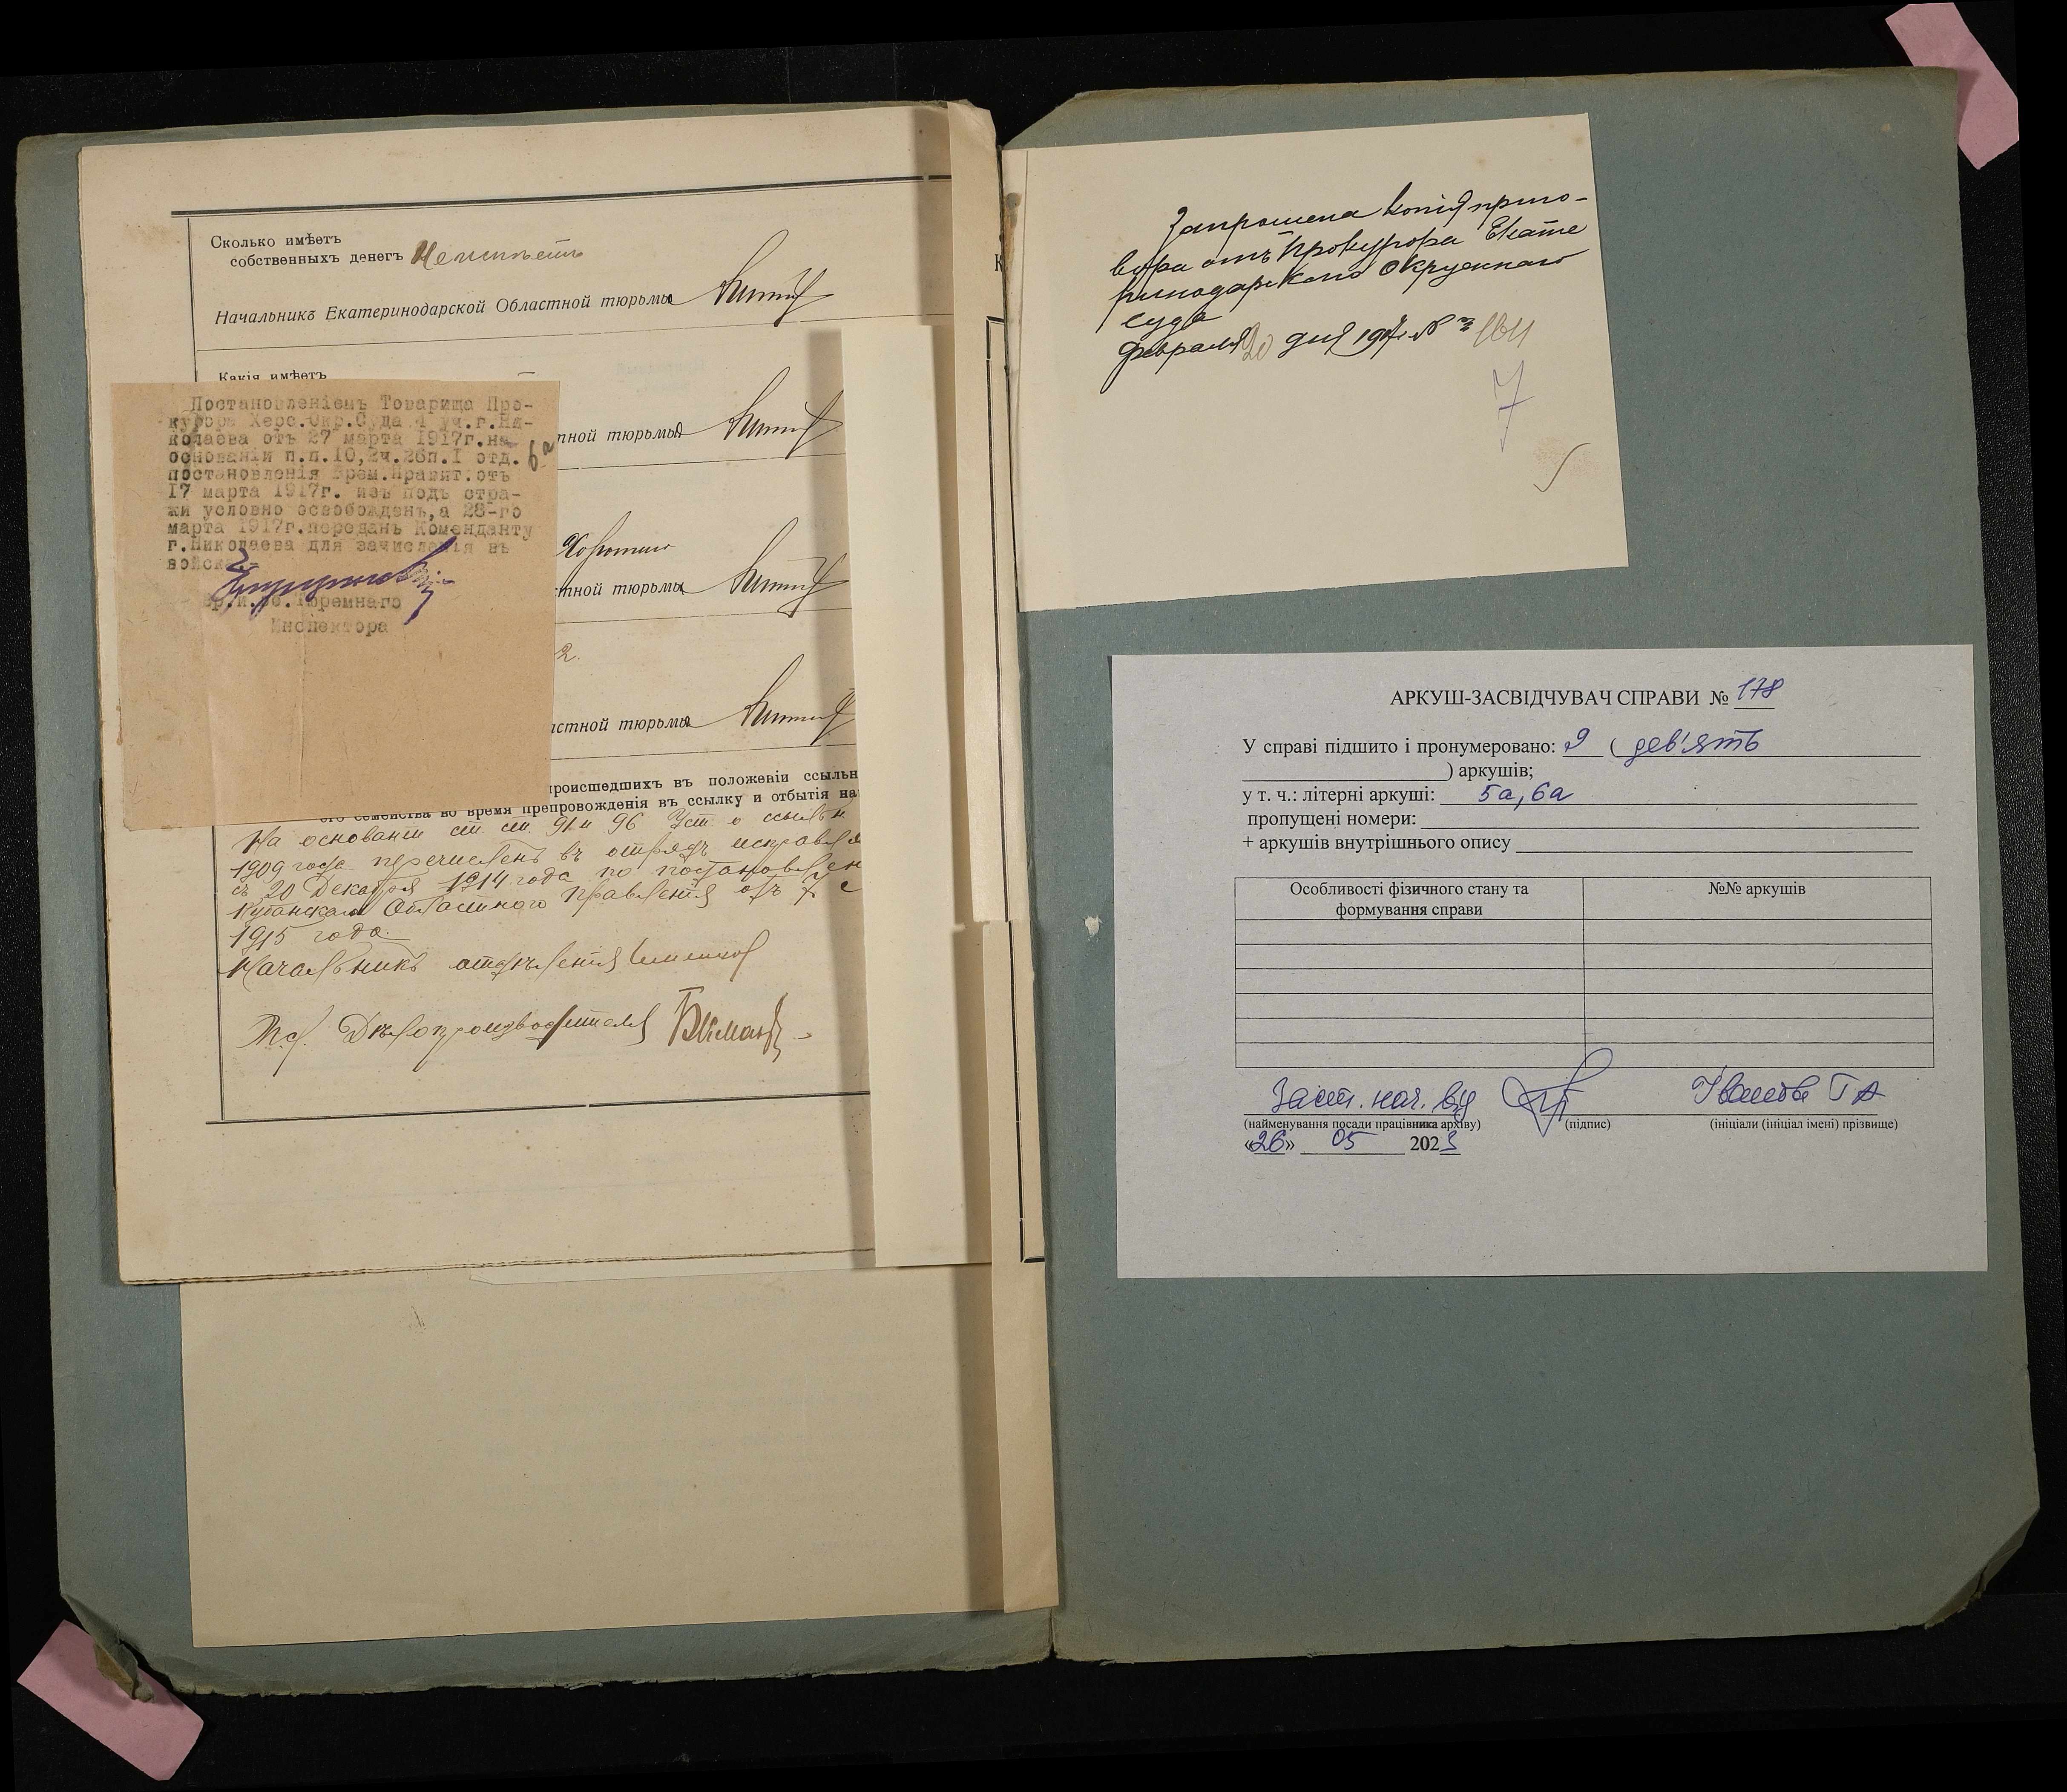 Сколько имѣетъ
собственныхъ денегъ Неимѣетъ
Начальникъ Екатеринодарской Областной тюрьмы
Какія имѣетъ
тной тюрьмы
Хорошаго
стной тюрьмы
2.
астной тюрьмы
Постановленіемъ Товарища Про-
курора Херс.Окр.Суда 1 уч.г.Ни-
колаева отъ 27 марта 1917г.на
основаніи п.п.10,2ч.26п.I отд.
постановленія Врем.Правит.отъ
17 марта 1917г. изъ подъ стра-
жи условно освобожденъ,а 28-го
марта 1917г.переданъ Коменданту
г.Николаева для зачисленія въ
войска.
Тюремнаго
Инспектора
6а
происшедшихъ въ положеніи ссыльн
его семейства во время препровожденія въ ссылку и отбытія на
На основаніи ст. ст. 91 и 96 Уст. о ссыльн
1909 года перечисленъ въ отрядъ исправля
съ 20 Декабря 1914 года по постановлен
Кубанскаго Областного Правленія отъ 7
1915 года.
Начальникъ отдѣленія
Дѣлопроизводителя
К
Запрошена копія приго-
вора отъ Прокурора Екате
ринодарскаго Окружнаго
суда
Февраля 20 дня 1917 г. №
7
АРКУШ-ЗАСВІДЧУВАЧ СПРАВИ № 178
У справі підшито і пронумеровано: 9 ( дев'ять
) аркушів;
у т. ч.: літерні аркуші: 5а, 6а
пропущені номери:
+ аркушів внутрішнього опису
Особливості фізичного стану та
формування справи
№№ аркушів
Заст. нач. від Іванова Г А
(найменування посади працівника архіву) (підпис) (ініціали (ініціал імені) прізвище)
«26» 05 2023